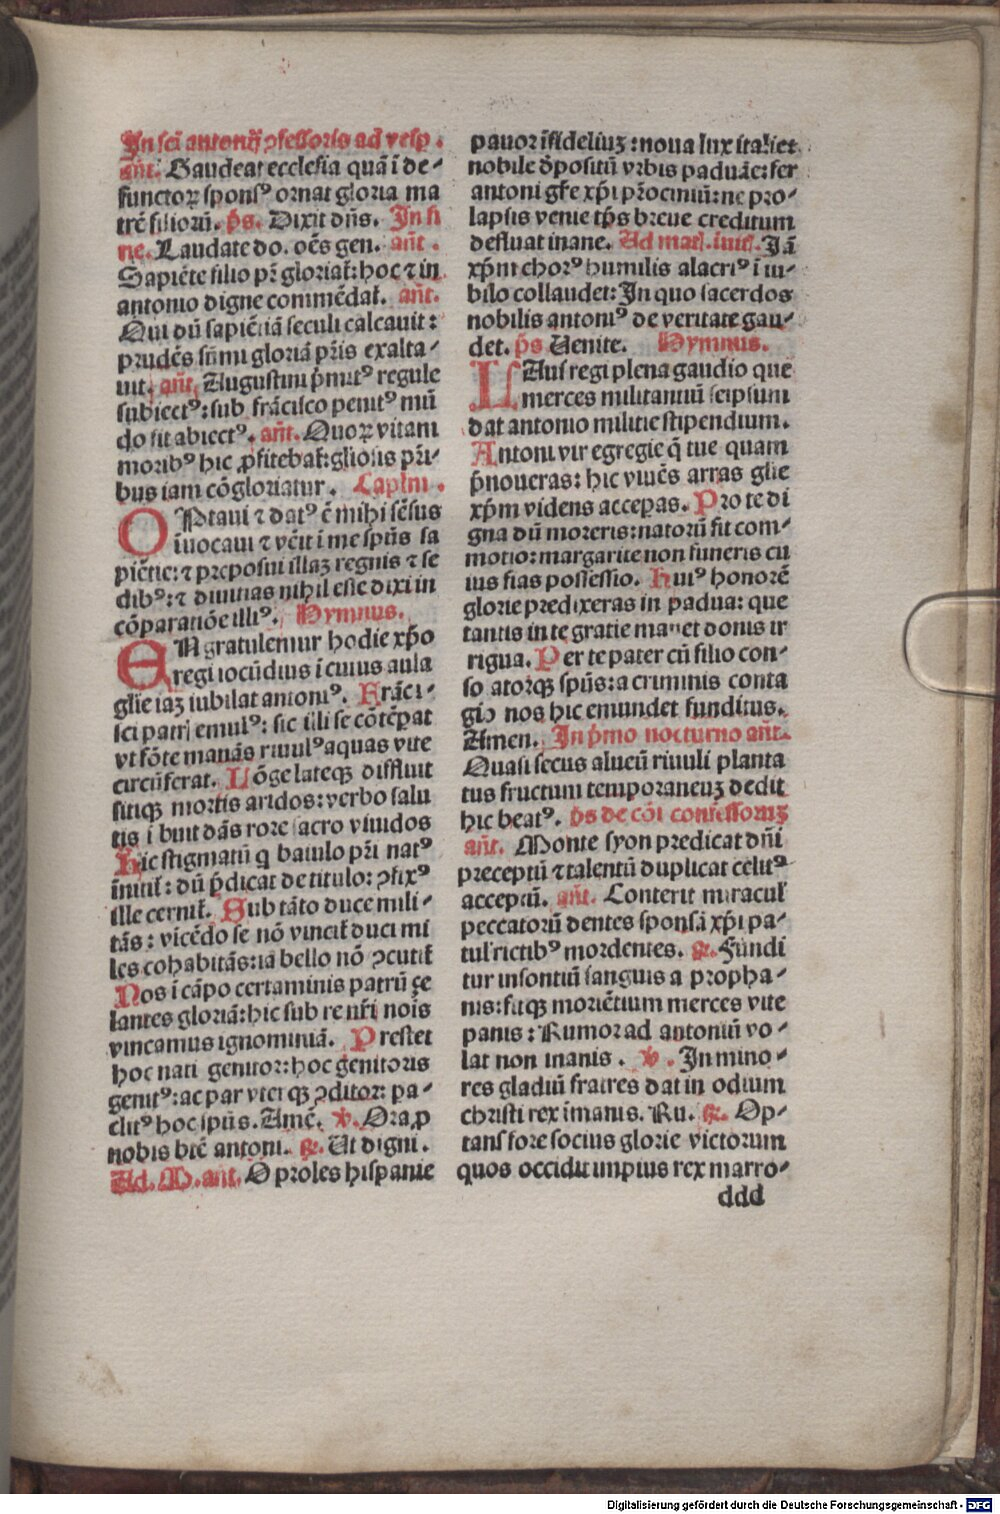 In sci antonij ꝯfessoris ad vesp̄.
añt. Gaudeat ecclesia quā ī de-
functoꝝ sponsꝰ ornat gloria ma
trē filiorū. p̄s. Dixit dn̄s. In fi
ne. Laudate do. oēs gen. añt.
Sapiēte filio pr̄ gloriat̄: hoc ⁊ in
antonio digne commēdat̄. añt.
Qui dū sapiētiā seculi calcauit:
prudēs sūmi gloriā pr̄is exalta-
uit. añt. Augustini p̄mitꝰ regule
subiectꝰ: sub frācisco penitꝰ mū
do fit abiectꝰ. añt. Quoꝝ vitam
moribꝰ hic ꝓfitebat̄: gliosis pr̄i-
bus iam cōgloriatur. Capl'm.
OPtaui ⁊ datꝰ ē mihi sēsus
īuocaui ⁊ vēit ī me spūs sa
piētie: ⁊ preposui illaꝫ regnis ⁊ se
dibꝰ: ⁊ diuitias nihil esse dixi in
cōparatiōe illiꝰ. Hymnus.
EN gratulemur hodie xp̄o
regi iocūdius ī cuius aula
glie iaꝫ iubilat antoniꝰ. Frāci-
sci patri emulꝰ: sic illi se cōtēpat
vt fōte manās riuulꝰ aquas vite
circūferat. Lōge lateqꝫ diffluit
sitiqꝫ mortis aridos: verbo salu
tis ībuit dās rore sacro viuidos
Hic stigmatū q̄ baiulo pr̄i natꝰ
īnitit̄: dū p̄dicat de titulo: ꝯfixꝰ
ille cernit̄. Sub tāto duce mili-
tās: vicēdo se nō vincit̄ duci mi
les cohabitās: ia bello nō ꝯcutit̄
Nos ī cāpo certaminis patrū ze
lantes gloriā: hic sub re nr̄i nois
vincamus ignominiā. Prestet
hoc nati genitor: hoc genitoris
genitꝰ: ac par vtriqꝫ ꝯditor: pa-
clitꝰ hoc ipūs. Amē. ℣. Ora ꝓ
nobis btē antoni. ℟. Ut digni.
Ad. M. añt. O proles hispanie
pauor īfideliuꝫ: noua lux italie:
nobile dp̄ositū vrbis paduāe: fer
antoni gr̄e xp̄i pr̄ociniū: ne pro-
lapsis venie tp̄s breue creditum
defluat inane. Ad mat̄. īuit̄. Jā
xp̄m chorꝰ humilis alacriꝰ ī iu-
bilo collaudet: In quo sacerdos
nobilis antoniꝰ de veritate gau-
det. p̄s Uenite. Hymnus.
LAus regi plena gaudio que
merces militantiū seipsum
dat antonio militie stipendium.
Antoni vir egregie q̄ tue quam
p̄noueras: hic viuēs arras glie
xp̄m videns accepas. Pro te di
gna dū moreris: natorū fit com-
motio: margarite non funeris cu
ius fias possessio. Huiꝰ honorē
glorie predixeras in padua: que
tantis in te gratie manet donis ir
rigua. Per te pater cū filio con-
so atorqꝫ spūs: a criminis conta
gio nos hic emundet funditus.
Amen. In p̄mo nocturno añt.
Quasi secus alueū riuuli planta
tus fructum temporaneuꝫ dedit
hic beatꝰ. p̄s de cōi confessoruꝫ
añt. Monte syon predicat dn̄i
preceptū ⁊ talentū duplicat celitꝰ
acceptū. añt. Conterit miracul'
peccatorū dentes sponsā xp̄i pa-
tul' rictibꝰ mordentes. ℟. Fundi
tur insontiū sanguis a propha-
nis: fitqꝫ moriētium merces vite
panis: Rumor ad antoniū vo-
lat non inanis. ℣. In mino-
res gladiū fratres dat in odium
christi rex īmanis. Ru. ℟. Op-
tans fore socius glorie victorum
quos occidit impius rex marro-
ddd
Digitalisierung gefördert durch die Deutsche Forschungsgemeinschaft - DFG